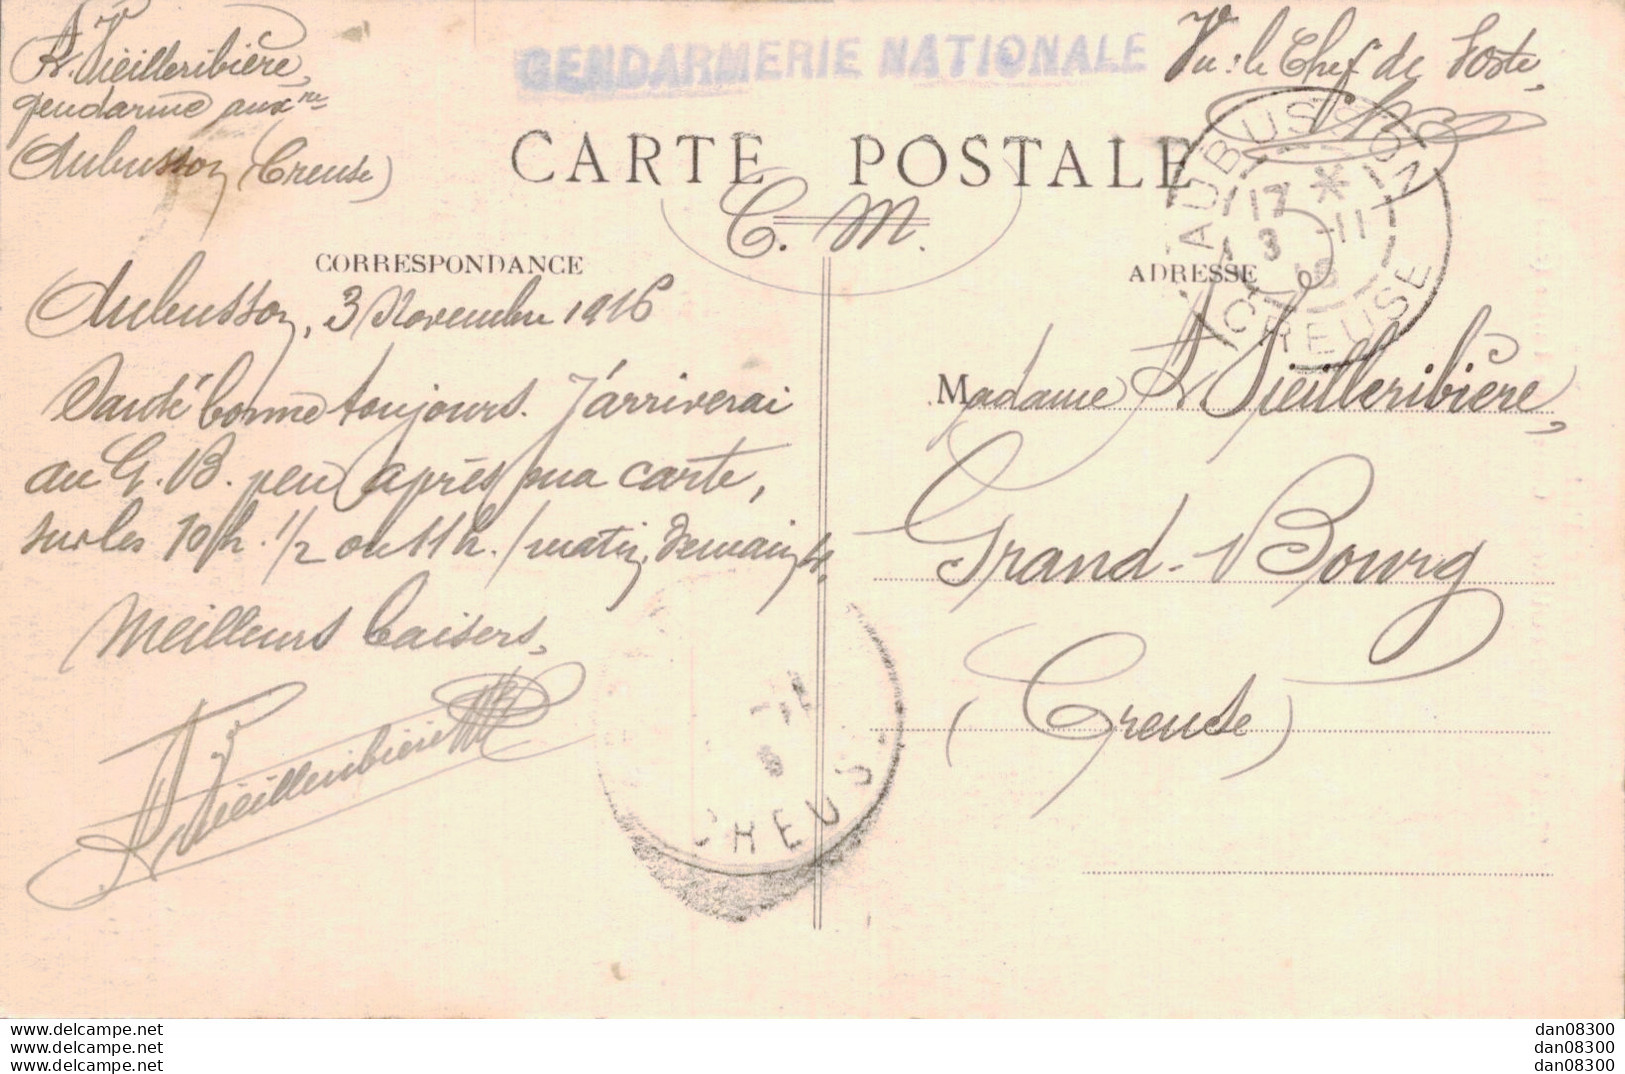 A. Vieilleribière,
gendarme aux^re
Aubusson (Creuse)
GENDARMERIE NATIONALE
Vu: le Chef de Poste,
CARTE POSTALE
C. M.
AUBUSSON
17 *
3 -11
16
CREUSE
CORRESPONDANCE
Aubusson, 3 Novembre 1916
Santé bonne toujours. J'arriverai
au G. B. peu après ma carte,
sur les 10h. 1/2 ou 11h. /matin, demain 4.
Meilleurs baisers,
A. Vieilleribière
CREUS
ADRESSE
Madame A. Vieilleribière,
Grand-Bourg
(Creuse)
www.delcampe.net
www.delcampe.net
www.delcampe.net
dan08300
dan08300
dan08300